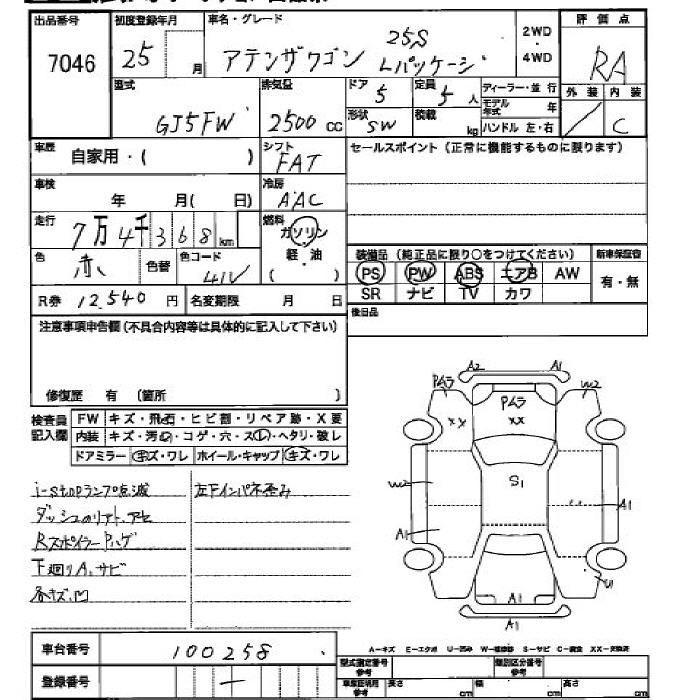 出品番号 初度登録年月 車名・グレード 評価点
7046 25 月 アテンザワゴン 25S Lパッケージ 2WD・4WD RA
型式 排気量 ドア 定員 ディーラー・並行 外装 内装
GJ5FW 2500 cc 5 5 人 モデル年式 年 / C
形状 SW 積載 kg ハンドル 左・右
車歴 自家用・( ) シフト FAT セールスポイント（正常に機能するものに限ります）
車検 年 月( 日) 冷房 AAC
走行 7万4千368 km 燃料 ガソリン・軽油 ( )
色 赤 色替 色コード 41V 装備品（純正品に限り○をつけてください） 新車保証書
PS PW ABS エアB AW 有・無
SR ナビ TV カワ
R券 12,540 円 名変期限 月 日 後日品
注意事項申告欄(不具合内容等は具体的に記入して下さい)
修復歴 有 (箇所 )
検査員記入欄 FW キズ・飛石・ヒビ割・リペア跡・X要
内装 キズ・汚れ・コゲ・穴・スレ・ヘタリ・破レ
ドアミラー キズ・ワレ ホイール・キャップ キズ・ワレ
i-stopランプ点滅 左下インパネ歪み
ダッシュのリアト、アセ
RスポイラーPハゲ
下廻りA、サビ
各キズ、凹
A2 A1
PムラXX PムラXX W2
W2 S1
A1 A1
A1 U1
A1
A-キズ E-エクボ U-凹み W-補修跡 S-サビ C-腐食 XX-交換済
車台番号 100258
登録番号 —
型式指定番号 参考 類別区分番号 参考
車庫証明用 参考 長さ cm 幅 cm 高さ cm